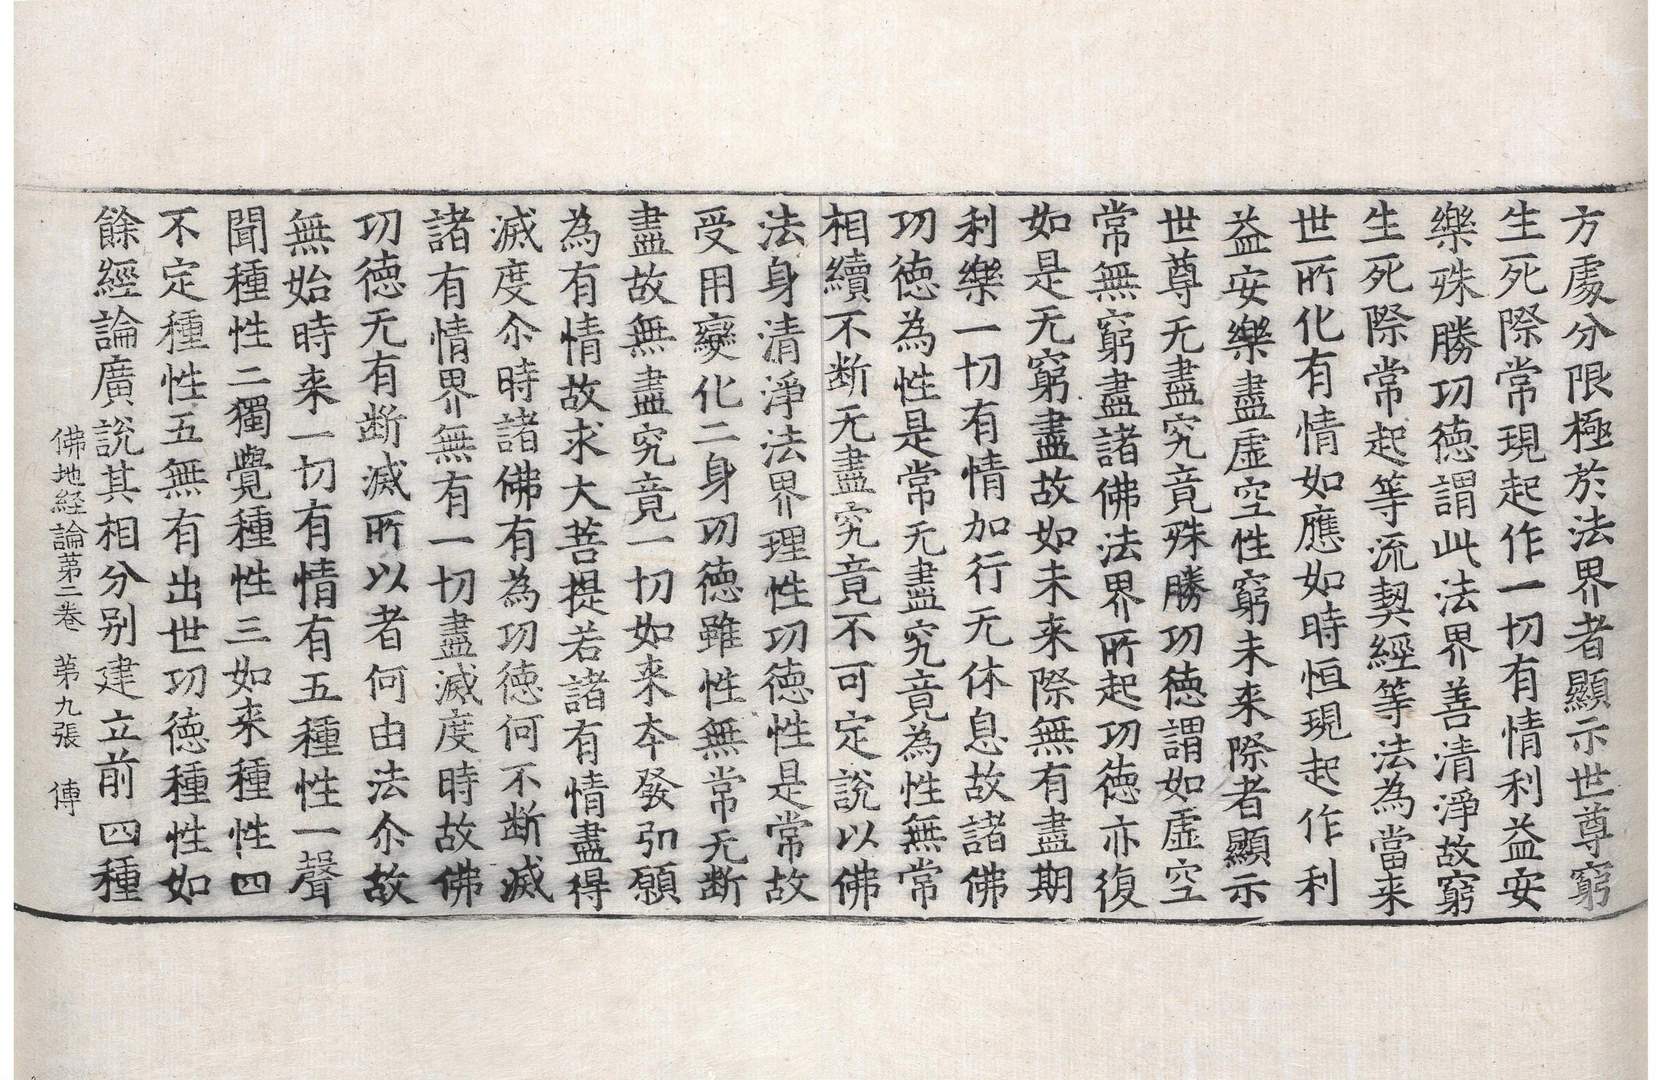 方處分限極於法界者顯示世尊窮
生死際常現起作一切有情利益安
樂殊勝功德謂此法界善清淨故窮
生死際常起等流契經等法為當来
世所化有情如應如時恒現起作利
益安樂盡虛空性窮未来際者顯示
世尊无盡究竟殊勝功德謂如虛空
常無窮盡諸佛法界所起功德亦復
如是无窮盡故如未来際無有盡期
利樂一切有情加行无休息故諸佛
功德為性是常无盡究竟為性無常
相續不断无盡究竟不可定說以佛
法身清淨法界理性功德性是常故
受用變化二身功德雖性無常无断
盡故無盡究竟一切如来本發弘願
為有情故求大菩提若諸有情盡得
滅度尒時諸佛有為功德何不断滅
諸有情界無有一切盡滅度時故佛
功德无有断滅所以者何由法尒故
無始時来一切有情有五種性一聲
聞種性二獨覺種性三如来種性四
不定種性五無有出世功德種性如
餘經論廣說其相分別建立前四種
佛地経論第二卷 第九張 傳